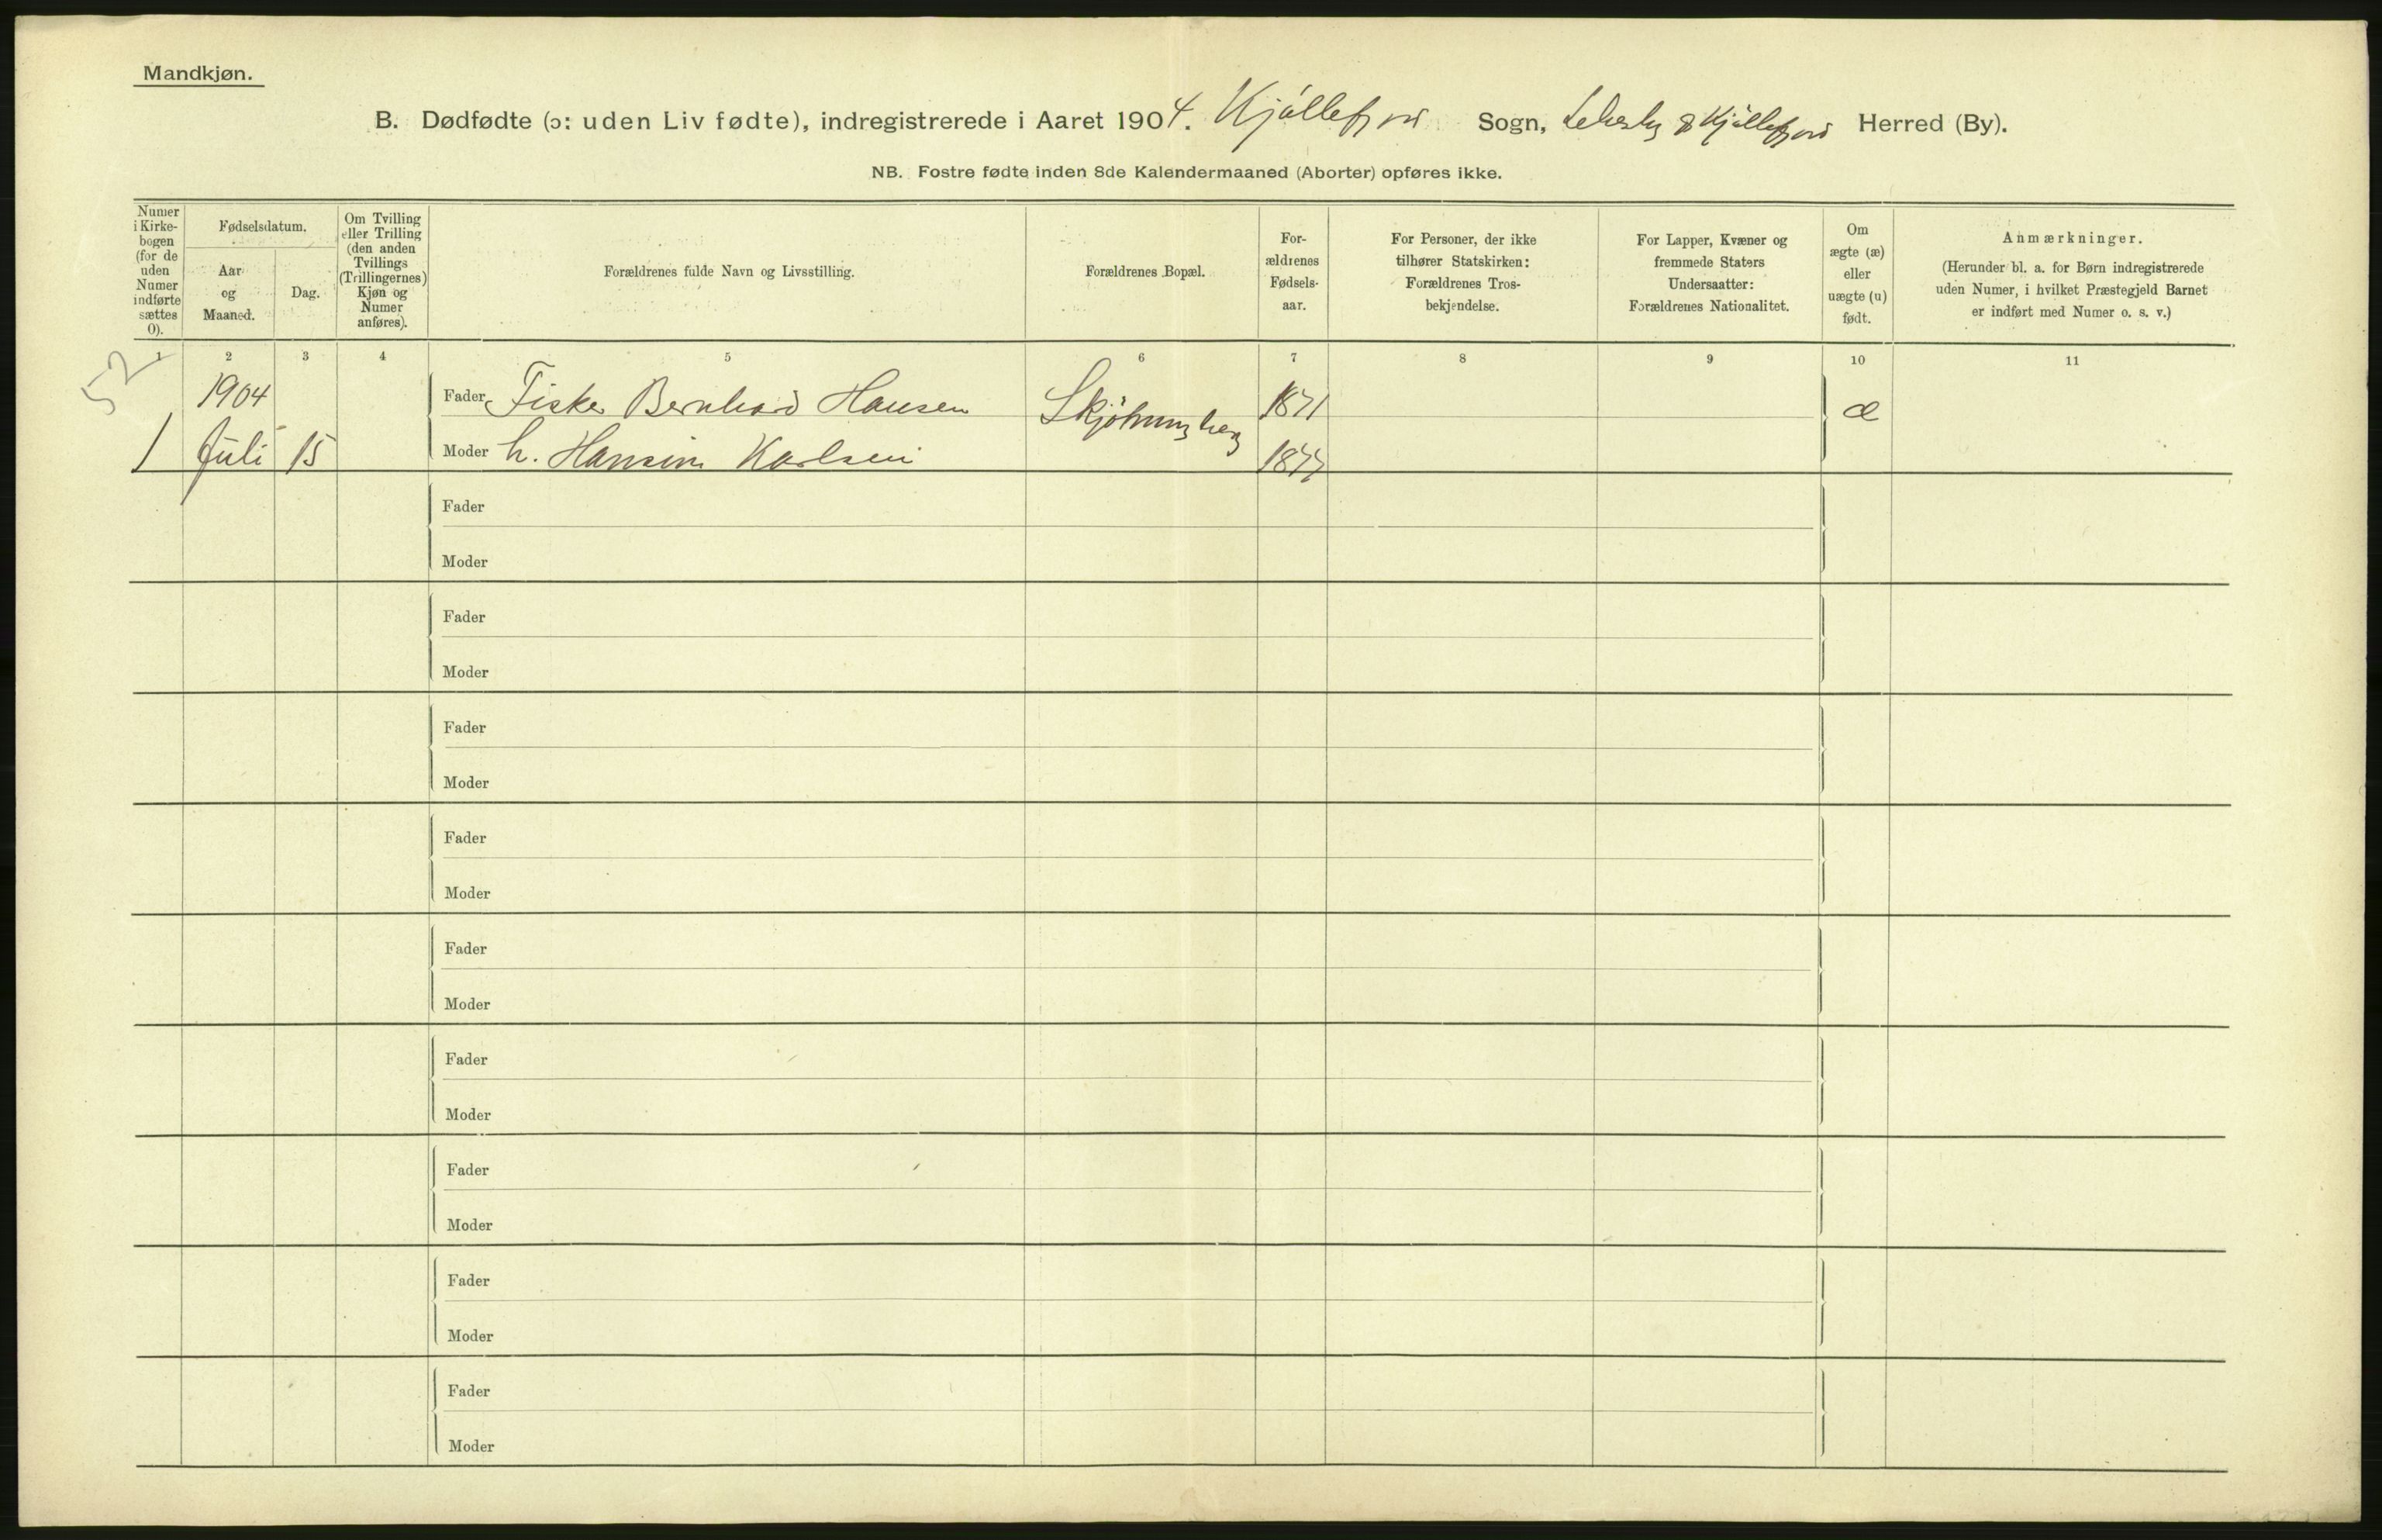 Mandkjøn.
B. Dødfødte (ɔ: uden Liv fødte), indregistrerede i Aaret 1904. Kjøllefjord Sogn, Lebesby & Kjøllefjord Herred (By).
NB. Fostre fødte inden 8de Kalendermaaned (Aborter) opføres ikke.
Numer
i Kirke-
bogen
(for de
uden
Numer
indførte
sættes
0).
Fødselsdatum.
Aar
og
Maaned.
Dag.
Om Tvilling
eller Trilling
(den anden
Tvillings
(Trillingernes)
Kjøn og
Numer
anføres).
Forældrenes fulde Navn og Livsstilling.
Forældrenes Bopæl.
For-
ældrenes
Fødsels-
aar.
For Personer, der ikke
tilhører Statskirken:
Forældrenes Tros-
bekjendelse.
For Lapper, Kvæner og
fremmede Staters
Undersaatter:
Forældrenes Nationalitet.
Om
ægte (æ)
eller
uægte (u)
født.
Anmærkninger.
(Herunder bl. a. for Børn indregistrerede
uden Numer, i hvilket Præstegjeld Barnet
er indført med Numer o. s. v.)
1 2 3 4 5 6 7 8 9 10 11
52
1904 Fader Fisker Bernhard Hansen 1871 æ
1 Juli 15 Moder h. Hansine Karlsen 1877
Fader
Moder
Fader
Moder
Fader
Moder
Fader
Moder
Fader
Moder
Fader
Moder
Fader
Moder
Fader
Moder
Fader
Moder